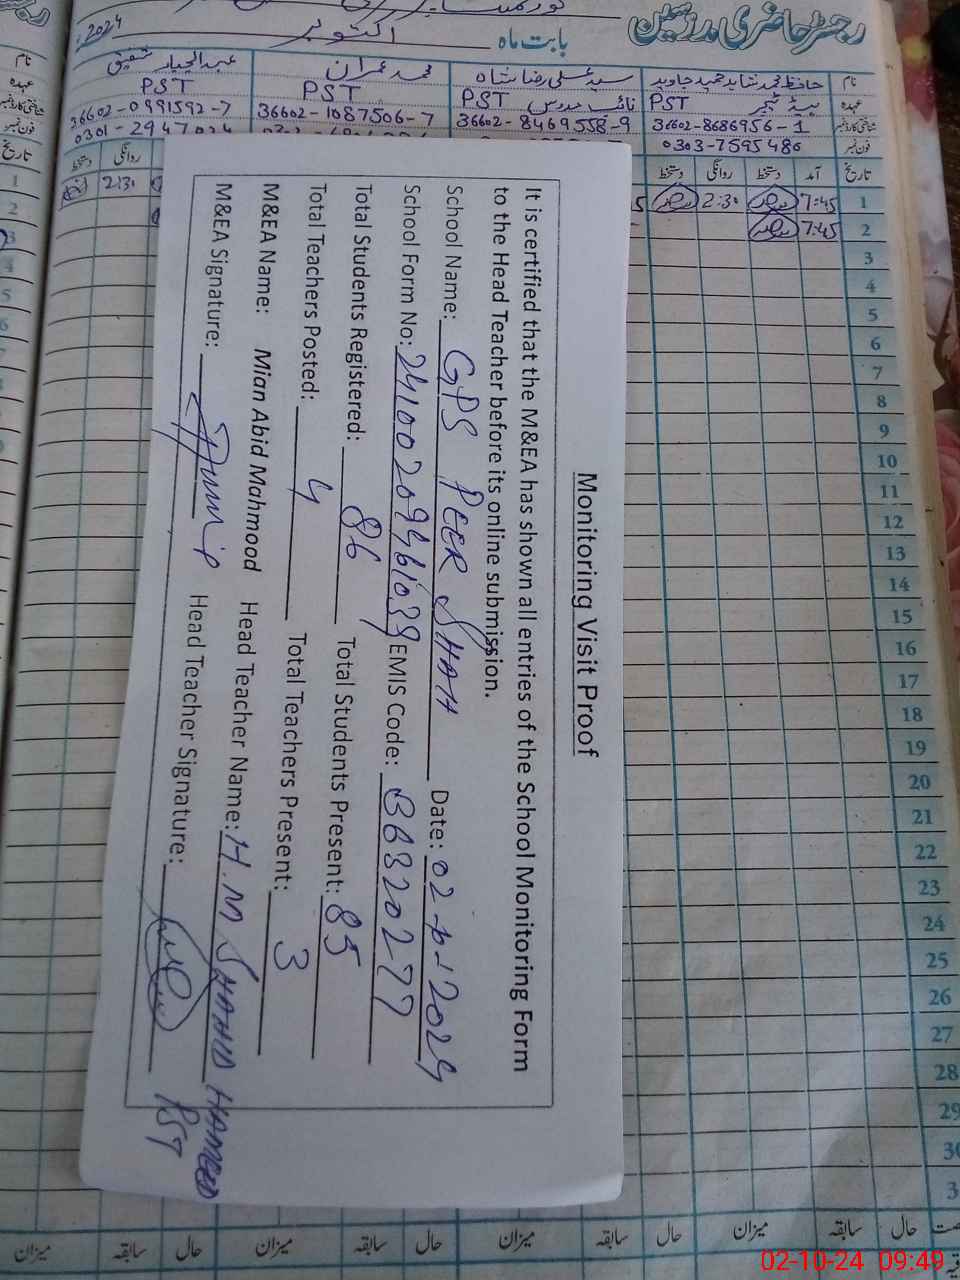 رجسٹر حاضری مدرسین
بابت ماہ اکتوبر 2024
نام حافظ محمد شاہد حمید جاوید سید علی رضا شاہ محمد عمران عبدالجبار شفیق
عہدہ ہیڈ ٹیچر PST نائب مدرس PST PST PST
شناختی کارڈ نمبر 36602-8686956-1 36602-8469558-9 36602-1087506-7 36602-0991592-7
فون نمبر 0303-7595486
تاریخ آمد دستخط روانگی دستخط روانگی دستخط
1 7:45 2:30 2:30
2 7:45
3
4
5
6
7
8
9
10
11
12
13
14
15
16
17
18
19
20
21
22
23
24
25
26
27
28
29
30
حال سابقہ میزان حال سابقہ میزان حال سابقہ میزان حال سابقہ میزان
Monitoring Visit Proof
It is certified that the M&EA has shown all entries of the School Monitoring Form
to the Head Teacher before its online submission.
School Name: GPS PEER SHAH Date: 02-10-2024
School Form No: EMIS Code: 36320277
Total Students Registered: 86 Total Students Present: 85
Total Teachers Posted: 4 Total Teachers Present: 3
M&EA Name: Mian Abid Mahmood Head Teacher Name: H.M SHAHID HAMEED
M&EA Signature: Head Teacher Signature: PST
02-10-24 09:49